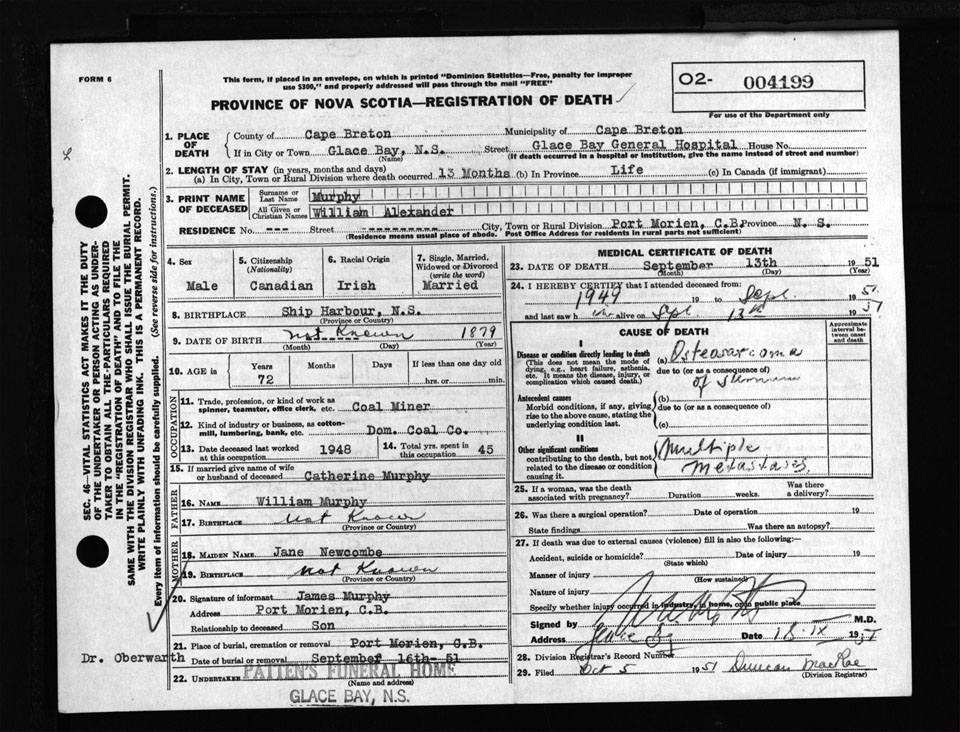 FORM 6
This form, if placed in an envelope, on which is printed "Dominion Statistics—Free, penalty for improper
use $300," and properly addressed will pass through the mail "FREE"
O2- 004199
For use of the Department only
PROVINCE OF NOVA SCOTIA—REGISTRATION OF DEATH
1. PLACE OF DEATH
County of Cape Breton Municipality of Cape Breton
If in City or Town Glace Bay, N.S. Street Glace Bay General Hospital House No.
(Name) (If death occurred in a hospital or institution, give the name instead of street and number)
2. LENGTH OF STAY (in years, months and days)
(a) In City, Town or Rural Division where death occurred 13 Months (b) In Province Life (c) In Canada (if immigrant)
3. PRINT NAME OF DECEASED
Surname or Last Name Murphy
All Given or Christian Names William Alexander
RESIDENCE No. --- Street --------- City, Town or Rural Division Port Morien, C.B. Province N. S.
(Residence means usual place of abode. Post Office Address for residents in rural parts not sufficient)
4. Sex Male
5. Citizenship (Nationality) Canadian
6. Racial Origin Irish
7. Single, Married, Widowed or Divorced (write the word) Married
8. BIRTHPLACE Ship Harbour, N.S.
(Province or Country)
9. DATE OF BIRTH Not Known 1879
(Month) (Day) (Year)
10. AGE in Years Months Days If less than one day old
72 hrs. or min.
OCCUPATION
11. Trade, profession, or kind of work as spinner, teamster, office clerk, etc. Coal Miner
12. Kind of industry or business, as cotton-mill, lumbering, bank, etc. Dom. Coal Co.
13. Date deceased last worked at this occupation 1948
14. Total yrs. spent in this occupation 45
15. If married give name of wife or husband of deceased Catherine Murphy
FATHER
16. NAME William Murphy
17. BIRTHPLACE Not Known
(Province or Country)
MOTHER
18. MAIDEN NAME Jane Newcombe
19. BIRTHPLACE Not Known
(Province or Country)
20. Signature of informant James Murphy
Address Port Morien, C.B.
Relationship to deceased Son
21. Place of burial, cremation or removal Port Morien, C.B.
Date of burial or removal September 16th- 51
22. UNDERTAKER PATTEN'S FUNERAL HOME
(Name and address)
GLACE BAY, N.S.
Dr. Oberwarth
MEDICAL CERTIFICATE OF DEATH
23. DATE OF DEATH September 13th 1951
(Month) (Day) (Year)
24. I HEREBY CERTIFY that I attended deceased from:
1949 to Sept. 1951
and last saw him alive on Sept 13th 1951
CAUSE OF DEATH
Approximate interval between onset and death
I
Disease or condition directly leading to death
(This does not mean the mode of dying, e.g., heart failure, asthenia, etc. It means the disease, injury, or complication which caused death.)
(a) Osteosarcoma
due to (or as a consequence of)
of sternum
Antecedent causes
Morbid conditions, if any, giving rise to the above cause, stating the underlying condition last.
(b)
due to (or as a consequence of)
(c)
II
Other significant conditions
contributing to the death, but not related to the disease or condition causing it.
Multiple
metastases.
25. If a woman, was the death associated with pregnancy? Duration weeks. Was there a delivery?
26. Was there a surgical operation? Date of operation 19
State findings Was there an autopsy?
27. If death was due to external causes (violence) fill in also the following:
Accident, suicide or homicide? Date of injury 19
(State which)
Manner of injury
(How sustained)
Nature of injury
Specify whether injury occurred in industry, in home, or in public place
Signed by M.D.
Address Glace Bay Date 18-IX 1951
28. Division Registrar's Record Number
29. Filed Oct 5 1951 Duncan MacRae
(Division Registrar)
SEC. 46—VITAL STATISTICS ACT MAKES IT THE DUTY
OF THE UNDERTAKER OR PERSON ACTING AS UNDER-
TAKER TO OBTAIN ALL THE PARTICULARS REQUIRED
IN THE "REGISTRATION OF DEATH" AND TO FILE THE
SAME WITH THE DIVISION REGISTRAR WHO SHALL ISSUE THE BURIAL PERMIT.
WRITE PLAINLY WITH UNFADING INK. THIS IS A PERMANENT RECORD.
Every item of information should be carefully supplied. (See reverse side for instructions.)